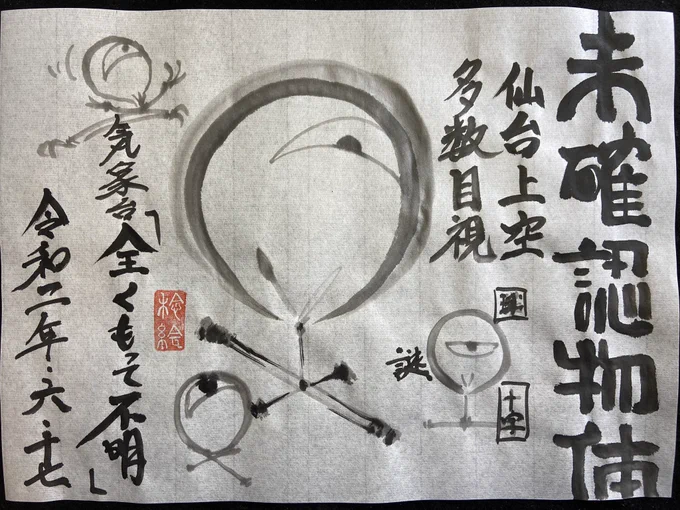 未確認物体
仙台上空
多数目視
球
十字
謎
気象台「全くもって不明」
令和二年・六・十七